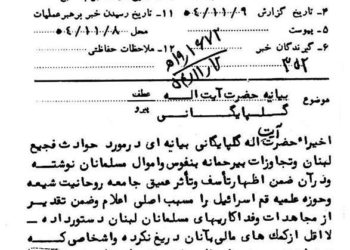 ۴ــ تاریخ گزارش ۵۰۴/۱۱/۹ ۱۱ــ تاریخ رسیدن خبر برهبر عملیات
۵ــ پیوست محل ۵۰۴/۱۱/۸
۶ــ گیرندگان خبر ۱۲ــ ملاحظات حفاظتی
۳۵۲
موضوع بیانیه حضرت آیت اله عطف
گلپایگانی پیرو
آیت
اخیرا حضرت اله گلپایگانی بیانیه ای درمورد حوادث فجیع
لبنان وتجاوزات بیرحمانه بنفوس واموال مسلمانان نوشته
ودرآن ضمن اظهارتأسف وتأثر عمیق جامعه روحانیت شیعه
وحوزه علمیه قم اسرائیل را مسبب اصلی اعلام وضمن تقدیر
از مجاهدات وفداکاریهای مسلمانان لبنان دستورداده ــ
لااقل ازکمک های مالی بآنان دریغ نکرده واشخاصی که